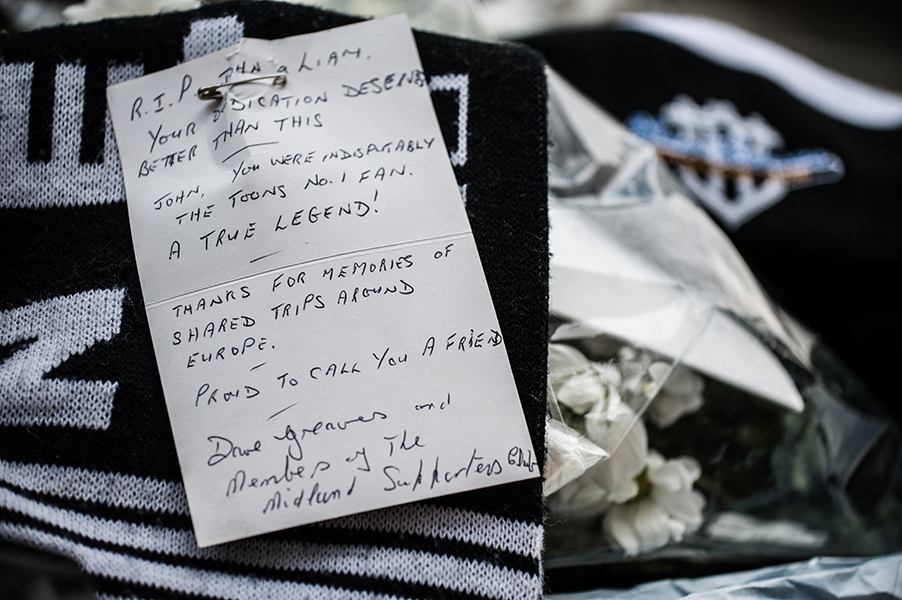 R.I.P. JOHN & LIAM.
YOUR DEDICATION DESERVES
BETTER THAN THIS
JOHN, YOU WERE INDISPUTABLY
THE TOONS NO.1 FAN.
A TRUE LEGEND!
THANKS FOR MEMORIES OF
SHARED TRIPS AROUND
EUROPE.
PROUD TO CALL YOU A FRIEND
Dave Greaves and
Members of The
Midland Supporters Club